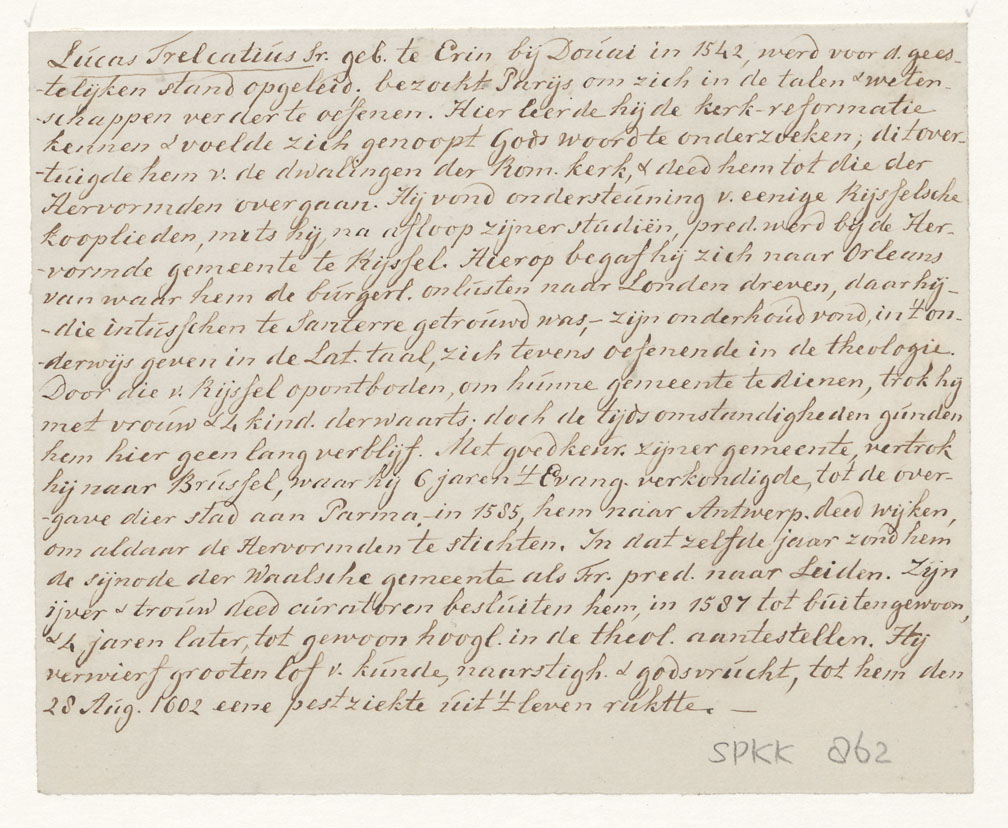 Lucas Trelcatius Sr. geb. te Erin bij Douai in 1542, werd voor d. gees-
-telijken stand opgeleid. bezocht Parijs om zich in de talen & weten-
-schappen verder te oefenen. Hier leerde hij de kerk-reformatie
kennen & voelde zich genoopt Gods woord te onderzoeken; dit over-
-tuigde hem v. de dwalingen der Rom. kerk, & deed hem tot die der
Hervormden overgaan. Hij vond ondersteuning v. eenige Rijsselsche
kooplieden, mits hij, na afloop zijner studiën, pred. werd bij de Her-
-vormde gemeente te Rijssel. Hierop begaf hij zich naar Orleans
van waar hem de burgerl. onlusten naar Londen dreven, daar hij -
- die intusschen te Santerre getrouwd was, - zijn onderhoud vond, in 't on-
-derwijs geven in de Lat. taal, zich tevens oefenende in de theologie.
Door die v. Rijssel opontboden, om hunne gemeente te dienen, trok hij
met vrouw & 4 kind. derwaarts. doch de tijdsomstandigheden gunden
hem hier geen lang verblijf. Met goedkeur. zijner gemeente, vertrok
hij naar Brussel, waar hij 6 jaren 't Evang. verkondigde, tot de over-
-gave dier stad aan Parma, in 1585, hem naar Antwerp. deed wijken,
om aldaar de Hervormden te stichten. In dat zelfde jaar zond hem
de sijnode der Waalsche gemeente als Fr. pred. naar Leiden. Zijn
ijver & trouw deed curatoren besluiten hem, in 1587 tot buitengewoon,
& 4 jaren later, tot gewoon hoogl. in de theol. aantestellen. Hij
verwierf grooten lof v. kunde, naarstigh. & godsvrucht, tot hem den
28 Aug. 1602 eene pestziekte uit 't leven rukte. —
SPKK 862